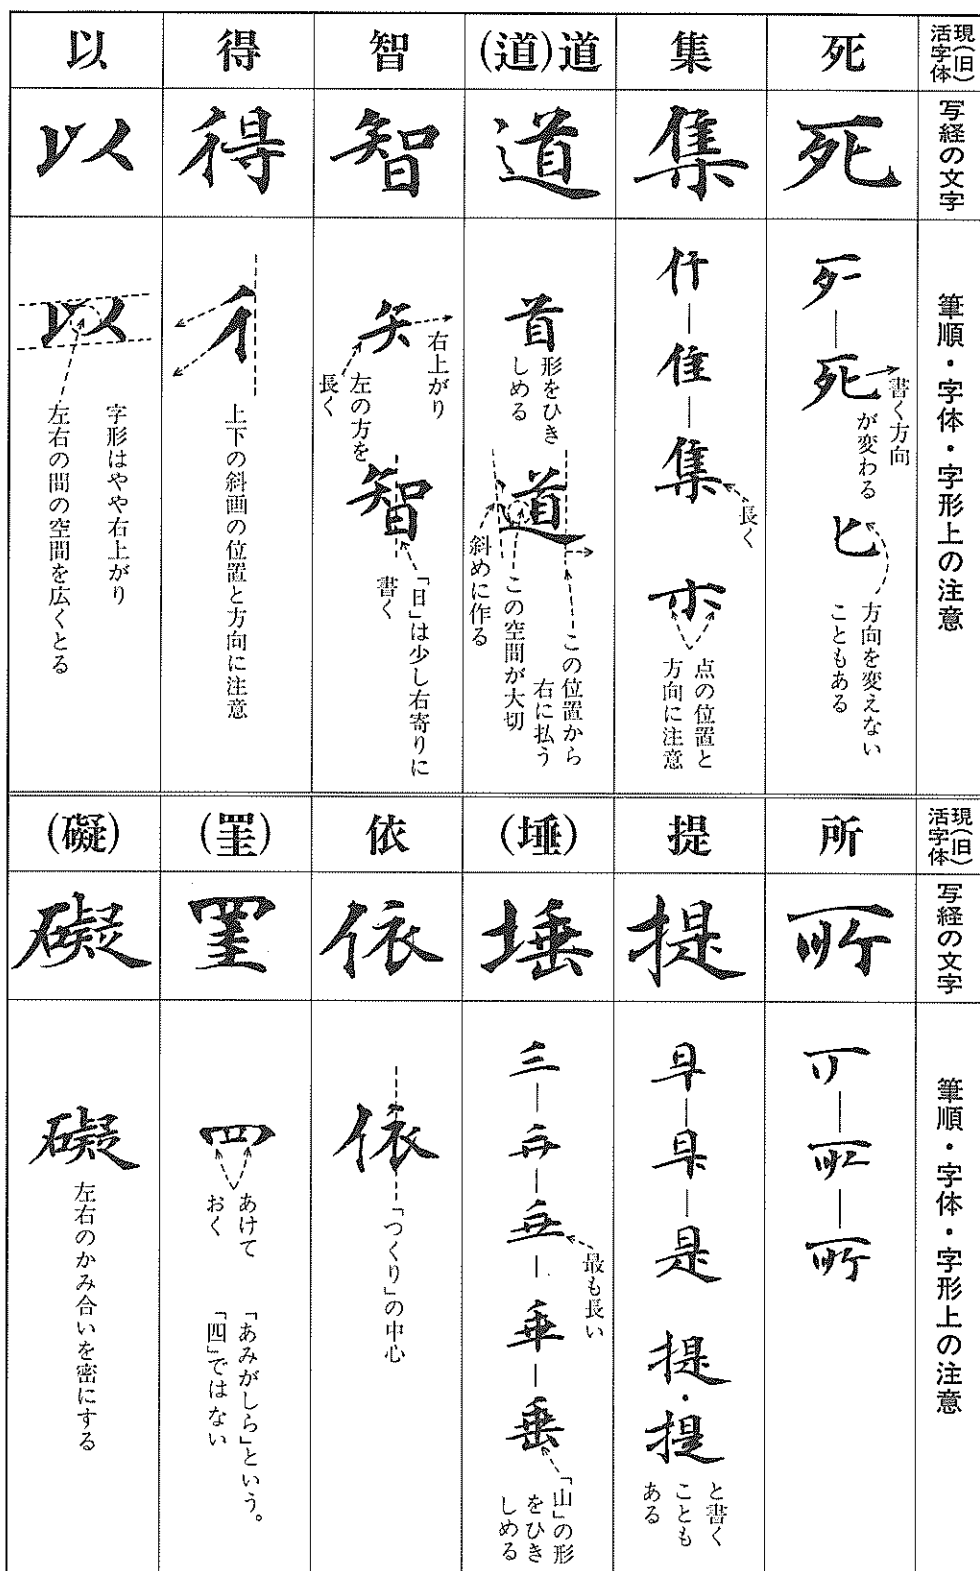 現(旧)
活字体
写経の文字
筆順・字体・字形上の注意
死
死
死
書く方向
が変わる
匕
方向を変えない
こともある
集
集
隹
集
長く
点の位置と
方向に注意
(道)道
道
首
形をひき
しめる
道
この位置から
右に払う
この空間が大切
斜めに作る
智
智
矢
右上がり
左の方を
長く
智
「日」は少し右寄りに
書く
得
得
彳
上下の斜画の位置と方向に注意
以
以
以
字形はやや右上がり
左右の間の空間を広くとる
現(旧)
活字体
写経の文字
筆順・字体・字形上の注意
所
所
所
提
提
旱
是
提・提
と書く
ことも
ある
(埵)
埵
三
垂
最も長い
「山」の形
をひき
しめる
依
依
依
「つくり」の中心
(罣)
罣
罒
あけて
おく
「あみがしら」という。
「四」ではない
(礙)
礙
礙
左右のかみ合いを密にする